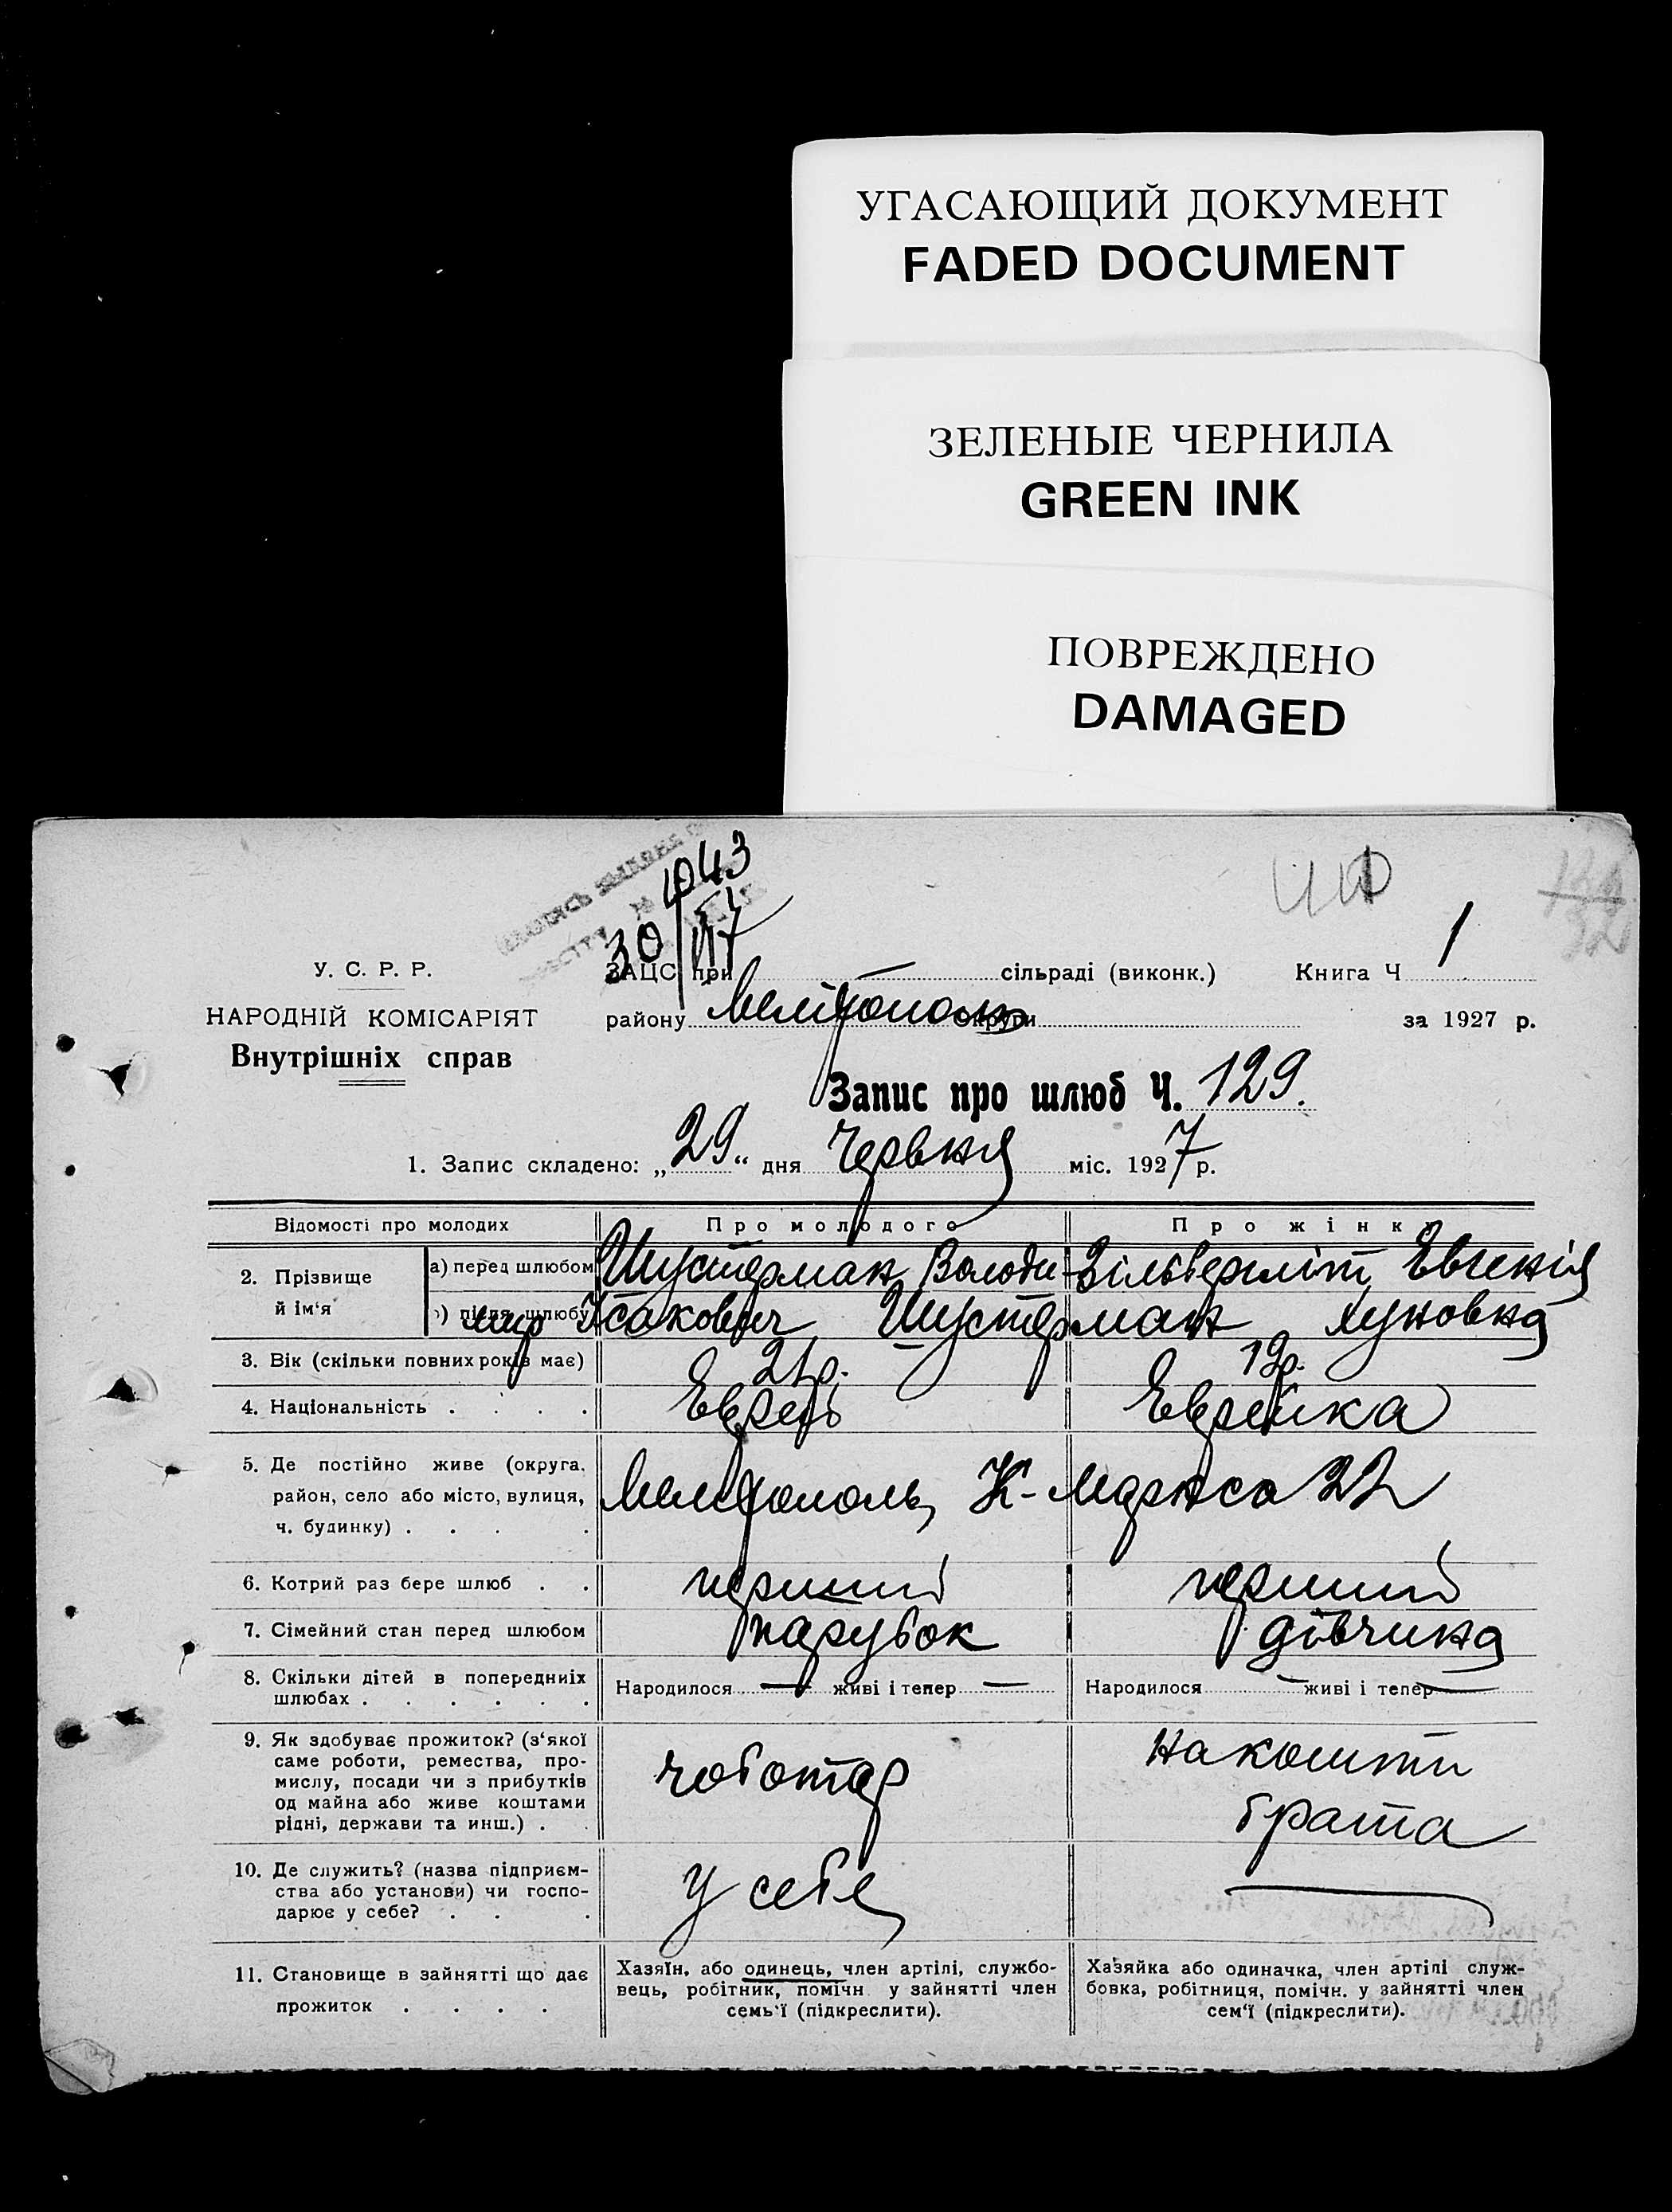 УГАСАЮЩИЙ ДОКУМЕНТ
FADED DOCUMENT
ЗЕЛЕНЫЕ ЧЕРНИЛА
GREEN INK
ПОВРЕЖДЕНО
DAMAGED
1043
30/VI 17
У. С. Р. Р.
ЗАЦС при — сільраді (виконк.) Книга Ч 1
НАРОДНІЙ КОМІСАРІЯТ
району Мелітополь округи за 1927 р.
Внутрішніх справ
Запис про шлюб Ч. 129.
1. Запис складено: „29“ дня Червня міс. 1927 р.
Відомості про молодих Про молодого Про жінку
2. Прізвище й ім‘я
а) перед шлюбом Шустерман Володи- Зільбершліт Евгенія
б) після шлюбу мир Ісакович Шустерман
3. Вік (скільки повних років має) 21 р. 19 р.
4. Національність . . . . Еврей Еврейка
5. Де постійно живе (округа,
район, село або місто, вулиця,
ч. будинку) . . . .
Мелітополь, К-Маркса 22
6. Котрий раз бере шлюб . . перший перший
7. Сімейний стан перед шлюбом парубок дівчина
8. Скільки дітей в попередниіх
шлюбах . . . . . .
Народилося — живі і тепер — Народилося — живі і тепер —
9. Як здобуває прожиток? (з‘якої
саме роботи, ремества, про-
мислу, посади чи з прибутків
од майна або живе коштами
рідні, держави та инш.) . .
чоботар
на кошти
брата
10. Де служить? (назва підприєм-
ства або установи) чи госпо-
дарює у себе? . . .
у себе —
11. Становище в зайнятті що дає
прожиток . . . .
Хазяїн, або одинець, член артілі, службо-
вець, робітник, помічн. у зайнятті член
семь‘ї (підкреслити).
Хазяйка або одиначка, член артілі служ-
бовка, робітниця, помічн. у зайнятті член
сем‘ї (підкреслити).